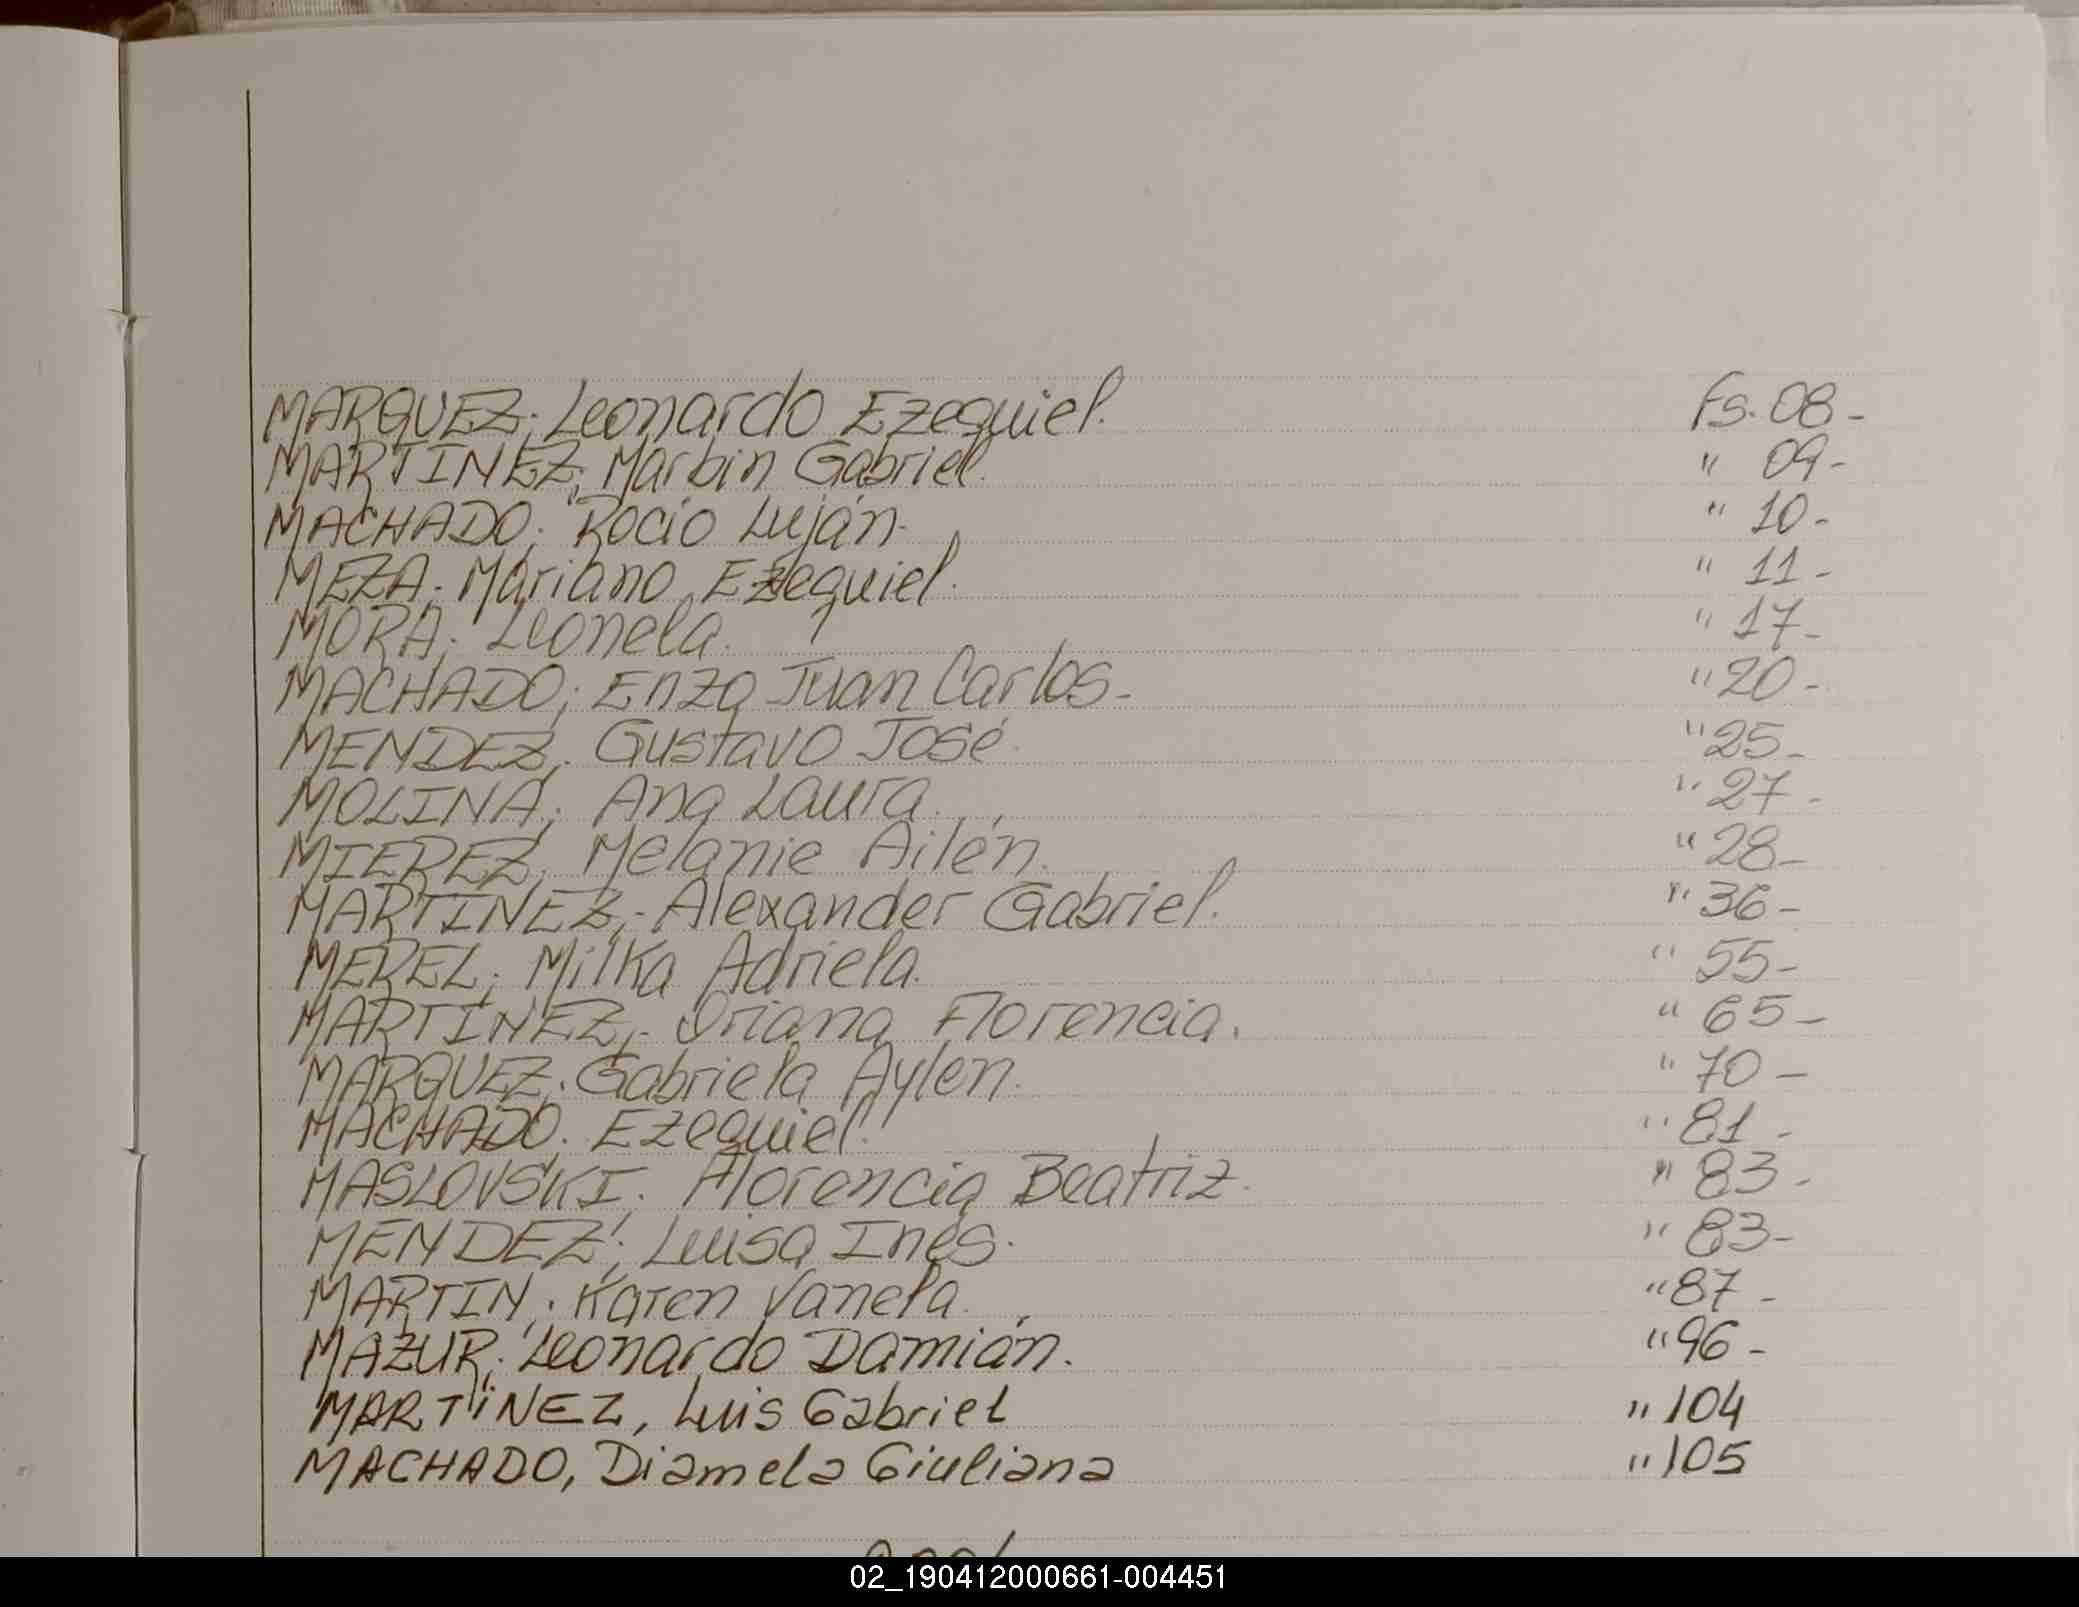 MARQUEZ; Leonardo Ezequiel. Fs. 08-
MARTINEZ; Marbin Gabriel. " 09-
MACHADO; Rocio Luján. " 10-
MEZA; Mariano Ezequiel. " 11-
MORA; Leonela. " 17-
MACHADO; Enzo Juan Carlos- " 20-
MENDEZ; Gustavo José. " 25-
MOLINA; Ana Laura. " 27-
MIEREZ; Melanie Ailén. " 28-
MARTINEZ;- Alexander Gabriel. " 36-
MEREL; Milka Adriela. " 55-
MARTINEZ;- Oriana Florencia. " 65-
MARQUEZ; Gabriela Aylen. " 70-
MACHADO. Ezequiel. " 81-
MASLOVSKI. Florencia Beatriz. " 83-
MENDEZ; Luisa Inés. " 83-
MARTIN; Karen Vanela. " 87-
MAZUR; Leonardo Damián. " 96-
MARTINEZ, Luis Gabriel " 104
MACHADO, Diamela Giuliana " 105
02_190412000661-004451